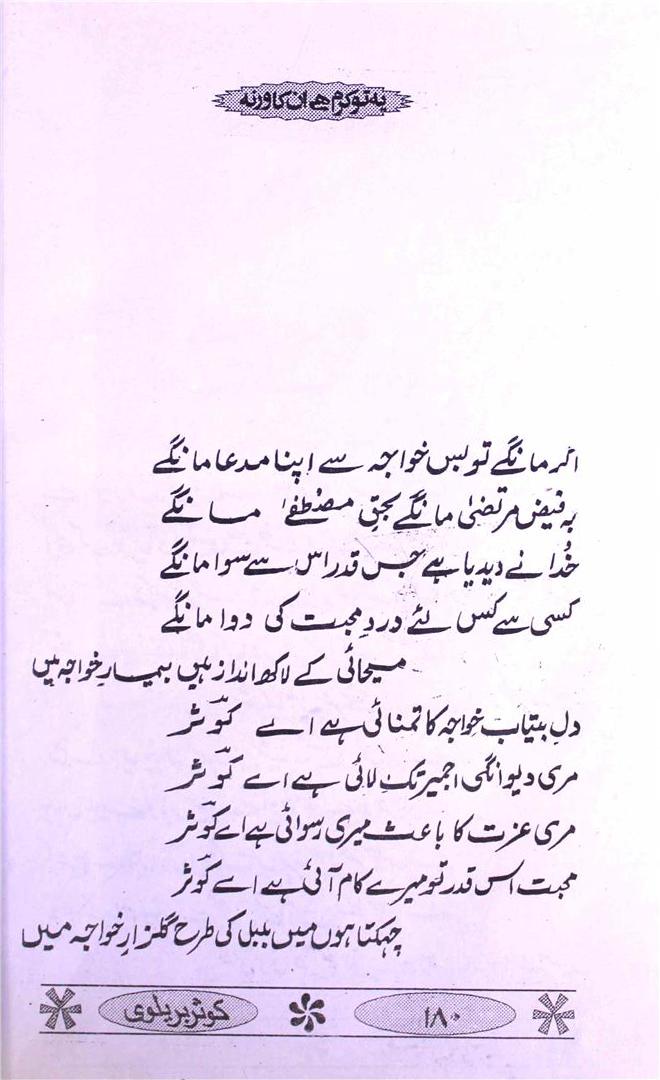 یہ تو کرم ہے ان کا ورنہ
اگر مانگے تو بس خواجہ سے اپنا مدعا مانگے
بہ فیض مرتضیٰ مانگے بحقِ مصطفےٰ مانگے
خُدا نے دیدیا ہے جس قدر اس سے سوا مانگے
کسی سے کس لئے دردِ محبت کی دوا مانگے
مسیحائی کے لاکھ انداز ہیں بیمارِ خواجہ میں
دلِ بیتاب خواجہ کا تمنائی ہے اے کوثر
مری دیوانگی اجمیر تک لائی ہے اے کوثر
مری عزت کا باعث میری رسوائی ہے اے کوثر
محبت اس قدر تو میرے کام آئی ہے اے کوثر
چہکتا ہوں میں بلبل کی طرح گلزارِ خواجہ میں
۱۸۰ کوثر بریلوی